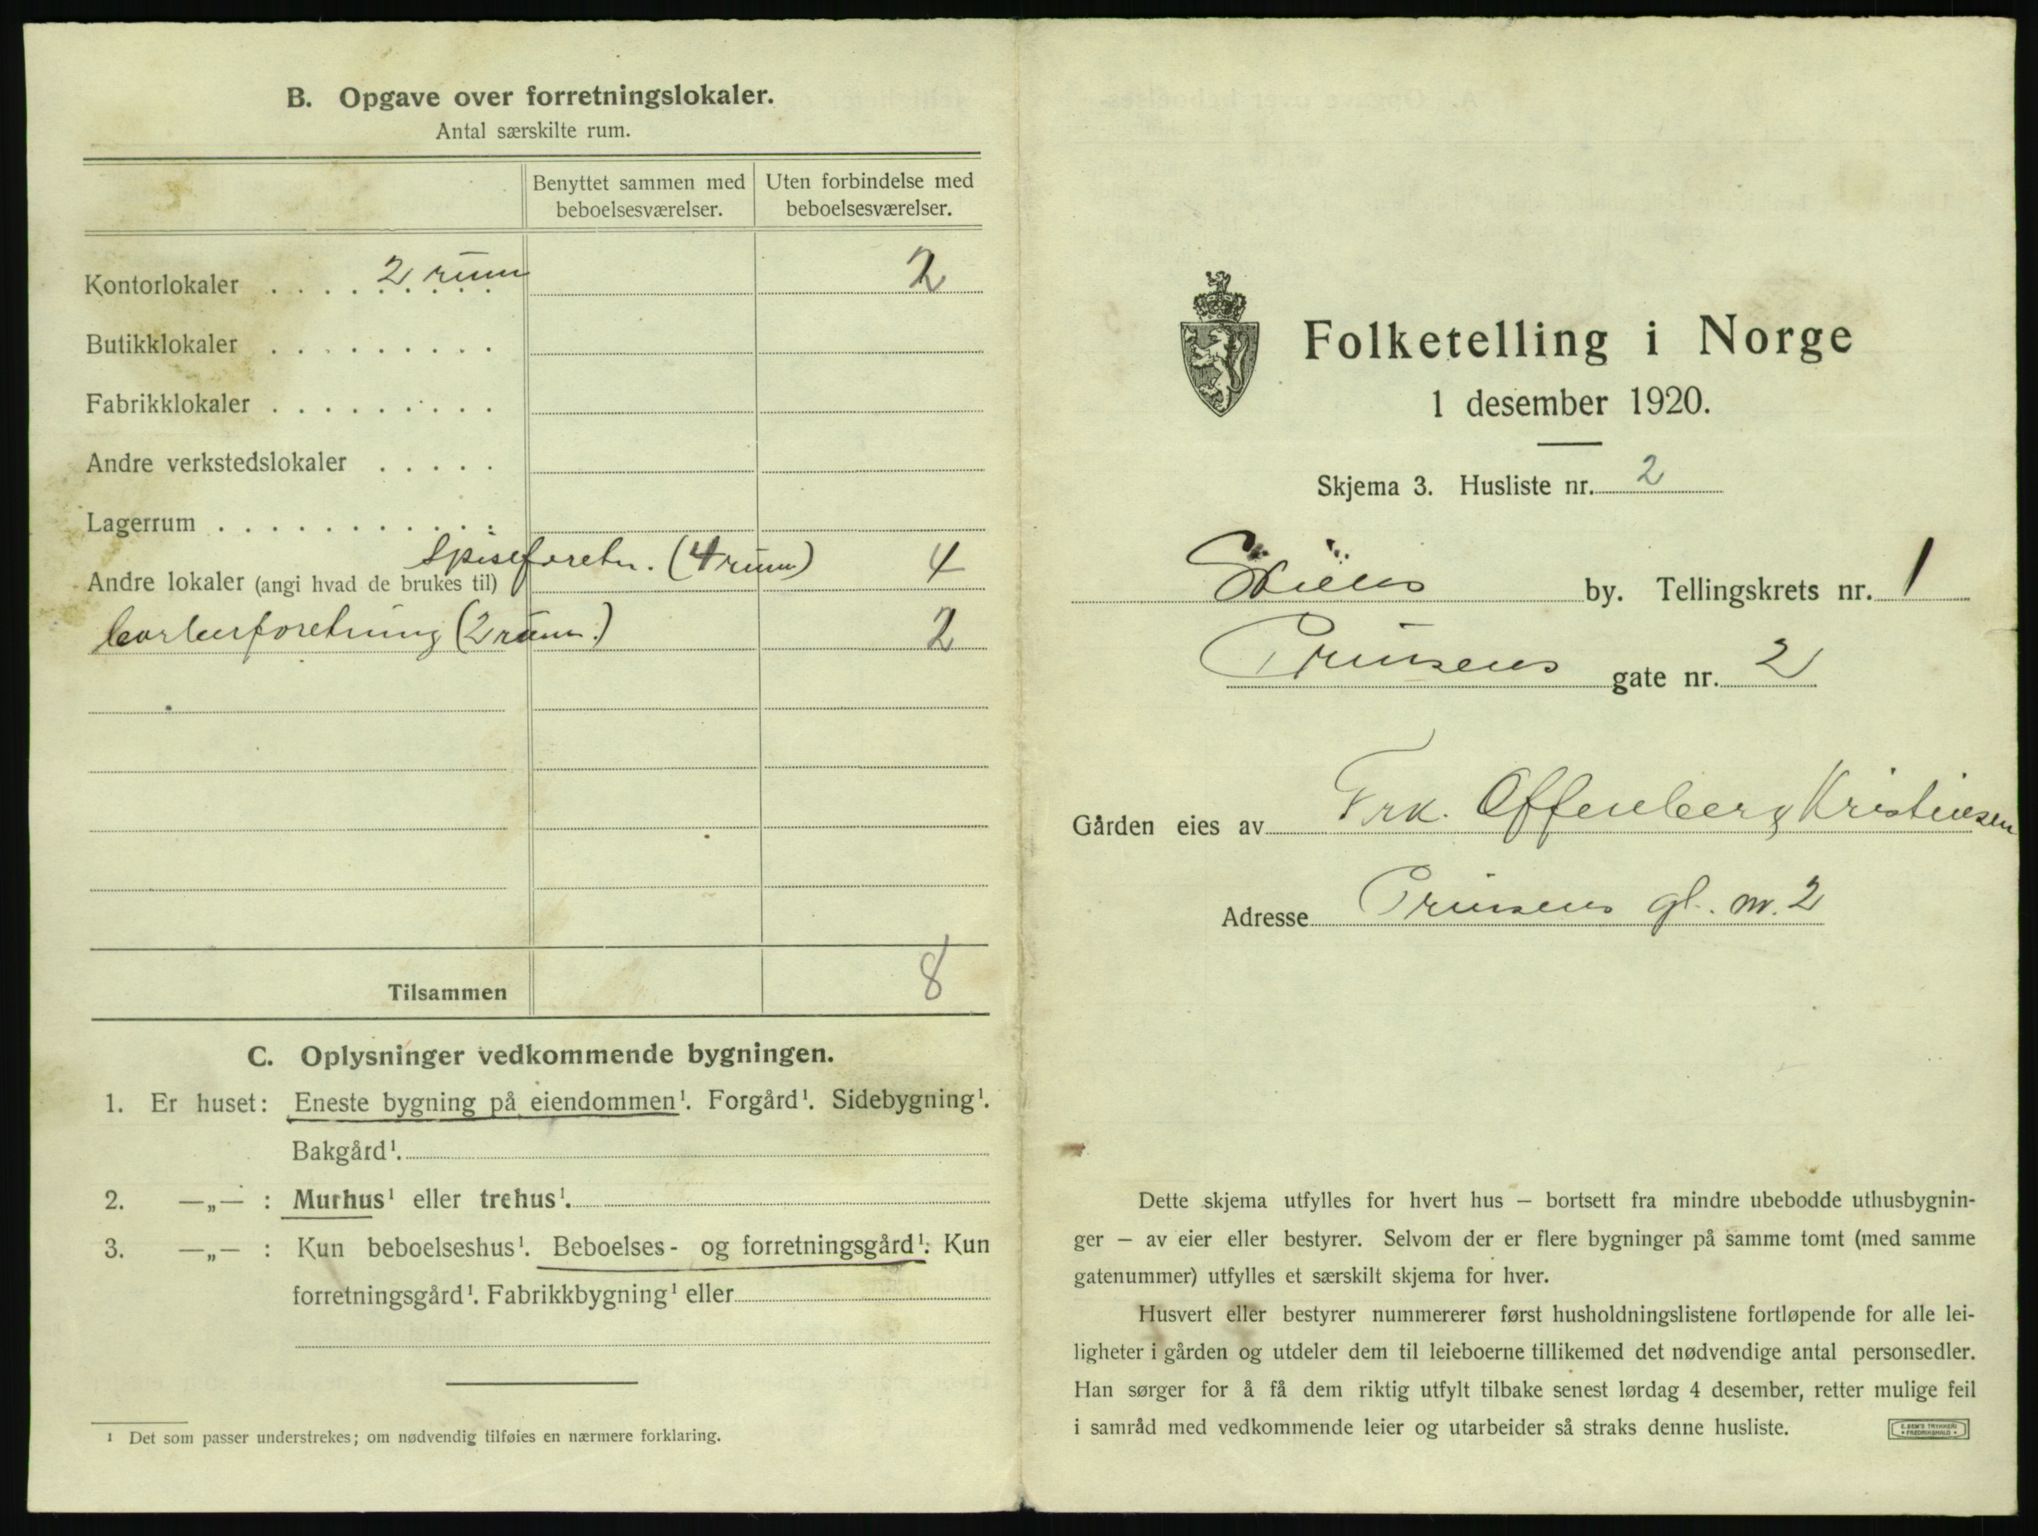 B. Opgave over forretningslokaler.
Antal særskilte rum.
Benyttet sammen med beboelsesværelser.
Uten forbindelse med beboelsesværelser.
Kontorlokaler . . . . . . . . . 2 rum 2
Butikklokaler . . . . . . . . .
Fabrikklokaler . . . . . . . . .
Andre verkstedslokaler . . . . .
Lagerrum . . . . . . . . . . .
Andre lokaler (angi hvad de brukes til) Spiseforetn. (4 rum) 4
barberforetning (2 rum.) 2
Tilsammen 8
C. Oplysninger vedkommende bygningen.
1. Er huset: Eneste bygning på eiendommen¹. Forgård¹. Sidebygning¹.
Bakgård¹.
2. —„— : Murhus¹ eller trehus¹.
3. —„— : Kun beboelseshus¹. Beboelses- og forretningsgård¹. Kun
forretningsgård¹. Fabrikkbygning¹ eller
¹ Det som passer understrekes; om nødvendig tilføies en nærmere forklaring.
Folketelling i Norge
1 desember 1920.
Skjema 3. Husliste nr. 2
Skiens by. Tellingskrets nr. 1
Prinsens gate nr. 2
Gården eies av Frk. Offenberg Kristiensen
Adresse Prinsens gt. nr. 2
Dette skjema utfylles for hvert hus – bortsett fra mindre ubebodde uthusbygnin-
ger – av eier eller bestyrer. Selvom der er flere bygninger på samme tomt (med samme
gatenummer) utfylles et særskilt skjema for hver.
Husvert eller bestyrer nummererer først husholdningslistene fortløpende for alle lei-
ligheter i gården og utdeler dem til leieboerne tillikemed det nødvendige antal personsedler.
Han sørger for å få dem riktig utfylt tilbake senest lørdag 4 desember, retter mulige feil
i samråd med vedkommende leier og utarbeider så straks denne husliste.
E. SEM'S TRYKKERI
• FREDRIKSHALD •